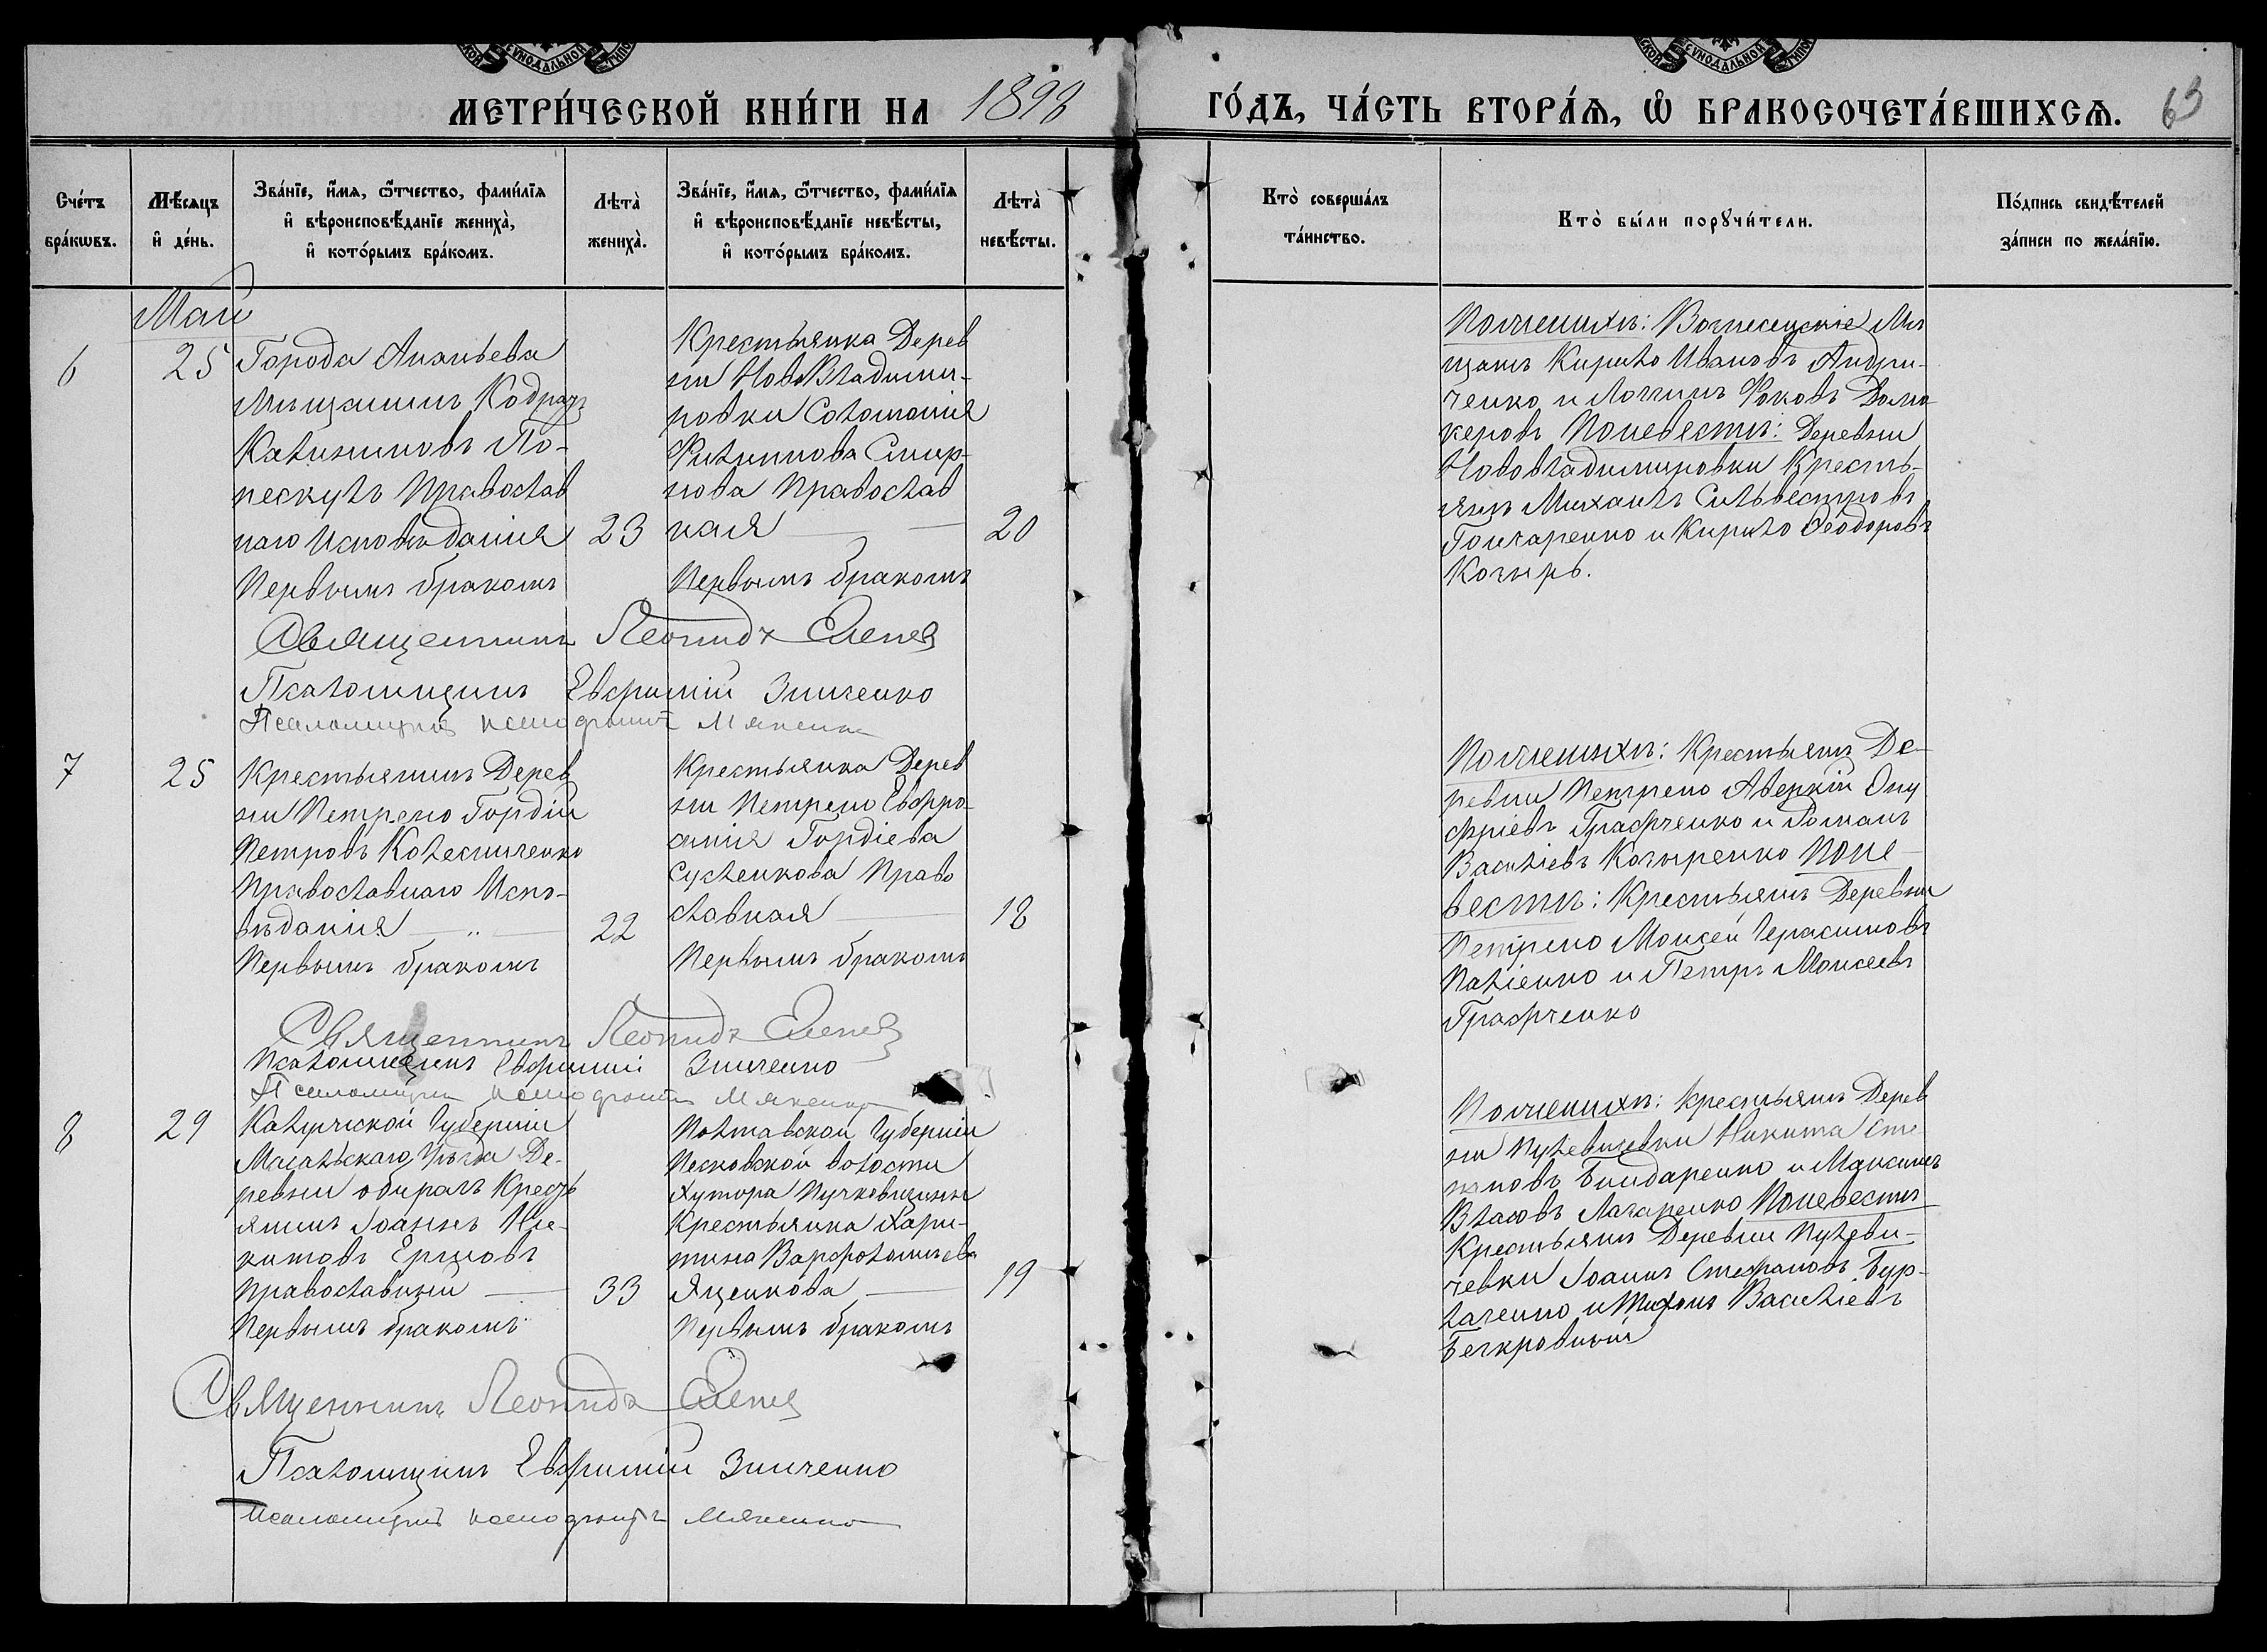 МЕТРИ́ЧЕСКОЙ КНИ́ГИ НА 1898
ГО́ДЪ, ЧА́СТЬ ВТОРА́Ѧ, Ѡ҆ БРАКОСОЧЕТА́ВШИХСѦ. 63
Сче́тъ бра́кѡвъ.
Мѣ́сѧцъ и҆ де́нь.
Зва́нїе, и҆́мѧ, ѻ҆́тчество, фами́лїѧ и҆ вѣроисповѣ́данїе жениха̀, и҆ кото́рымъ бра́комъ.
Лѣта̀ жениха̀.
Зва́нїе, и҆́мѧ, ѻ҆́тчество, фами́лїѧ и҆ вѣроисповѣ́данїе невѣ́сты, и҆ кото́рымъ бра́комъ.
Лѣта̀ невѣ́сты.
Кто̀ соверша́лъ та́инство.
Кто̀ бы́ли порꙋчи́тели.
По́дпись свидѣ́телей за́писи по жела́нїю.
Май
6
25
Города Ананьева
Мѣщанинъ Кодратъ
Калинниковъ По-
пескулъ Православ
наго Исповѣданія
Первымъ бракомъ
23
Крестьянка Дерев
ни НовоВладими-
ровки Соломонія
Филиппова Смир-
нова Православ
ная
Первымъ бракомъ
20
По женихѣ: Вознесенскіе Мѣ
щане Кирило Ивановъ Андрі-
ченко и Логгинъ Фоковъ
По невестѣ: Деревни
Нововладимировки Кресть-
яне Михаилъ Сильвестровъ
Гончаренко и Кирило Ѳеодоровъ
Козырь.
Священникъ Леонидъ
Псаломщикъ Евфимій Зинченко
Псаломщикъ Ксенофонтъ
7
25
Крестьянинъ Дерев
ни Петрено Гордій
Петровъ Колесниченко
Православнаго Испо-
вѣданія
Первымъ бракомъ
22
Крестьянка Дерев
ни Петрено Евфро-
синія Гордіева
Сусленкова Право
славная
Первымъ бракомъ
18
По женихѣ: Крестьяне Де-
ревни Петрено Аверкій Ону
фріевъ Графченко и Романъ
Василіевъ Козыренко По не-
вестѣ: Крестьяне Деревни
Петрено Моисей Герасимовъ
Паліенко и Петръ Моисеевъ
Графченко
Священникъ Леонидъ
Псаломщикъ Евфимій Зинченко
Псаломщикъ Ксенофонтъ
8
29
Калужской Губерніи
Масальскаго Уѣзда Де-
ревни Кресть
янинъ Іоаннъ Ни-
китовъ Ершовъ
Православный
Первымъ бракомъ
33
Полтавской Губерніи
Песковской волости
Хутора Пучковщины
Крестьянка Хари-
тина Варфоломѣева
Яценкова
Первымъ бракомъ
19
По женихѣ: Крестьяне Дерев
ни Пулевичевки Никита Сте
пановъ Бондаренко и Максимъ
Власовъ Лазаренко По невестѣ
Крестьяне Деревни Пулеви-
чевки Іоаннъ Стефановъ Бур-
лаченко и Тихонъ Василіевъ
Безкровный
Священникъ Леонидъ
Псаломщикъ Евфимій Зинченко
Псаломщикъ Ксенофонтъ